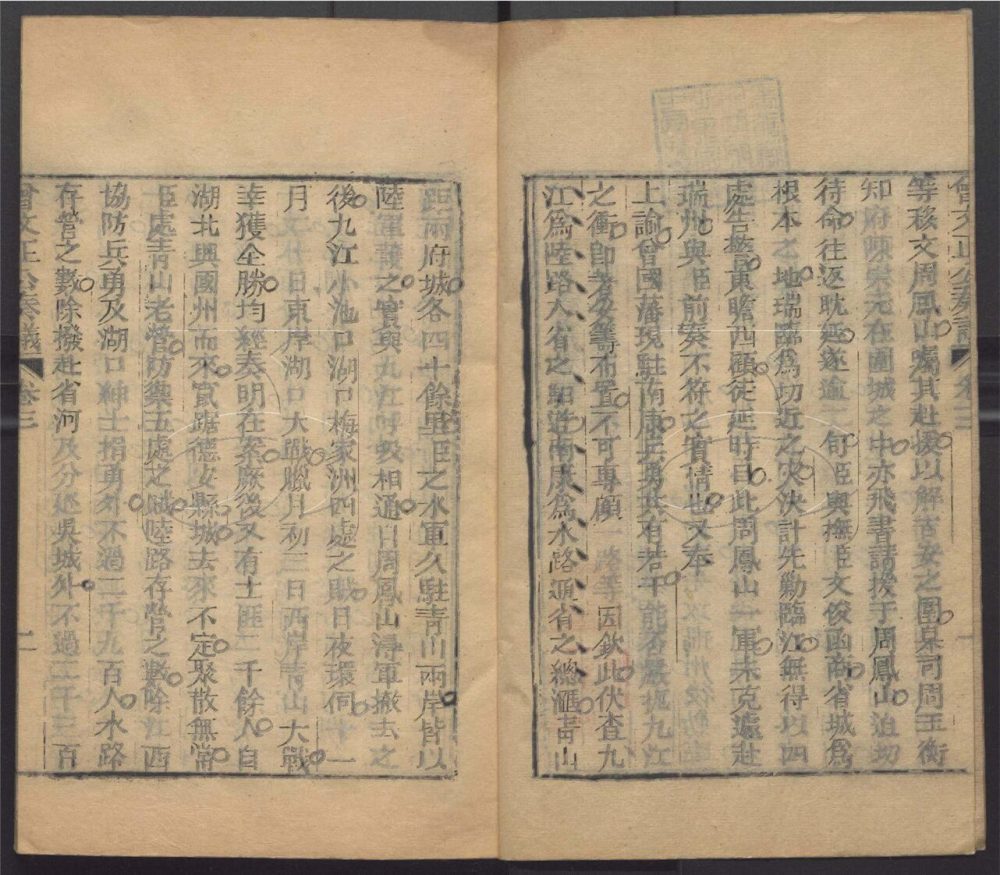 曾文正公奏議 卷三
等移文周鳳山囑其赴援以解吉安之圍臬司周玉衡
知府陳宗元在圍城之中亦飛書請援于周鳳山迨切
待命往返耽延遂逾二旬臣與撫臣文俊函商省城爲
根本之地瑞臨爲切近之災決計先勦臨江無得以四
處告警東瞻西顧徒延時日此周鳳山一軍未克遽赴
瑞州與臣前奏不符之實情也又奉
上諭曾國藩現駐南康兵勇共有若干能否嚴扼九江
之衝卽著妥籌布置不可專顧一路等因欽此伏查九
江爲陸路入省之路南康爲水路通省之總滙靑山
距兩府城各四十餘里臣之水軍久駐靑山兩岸皆以
陸軍護之實與九江呼吸相通自周鳳山潯軍撤去之
後九江小池口湖口梅家洲四處之賊日夜環伺十一
月 日東岸湖口大戰臘月初三日西岸靑山大戰
幸獲全勝均經奏明在案厥後又有土匪二千餘人自
湖北興國州而來實踞德安縣城去來不定聚散無常
臣處靑山老營防禦五處之賊陸路存營之數除江西
協防兵勇及湖口紳士捐勇外不過二千九百人水路
存營之數除撥赴省河及分巡吳城外不過二千三百
曾文正公奏議 卷三